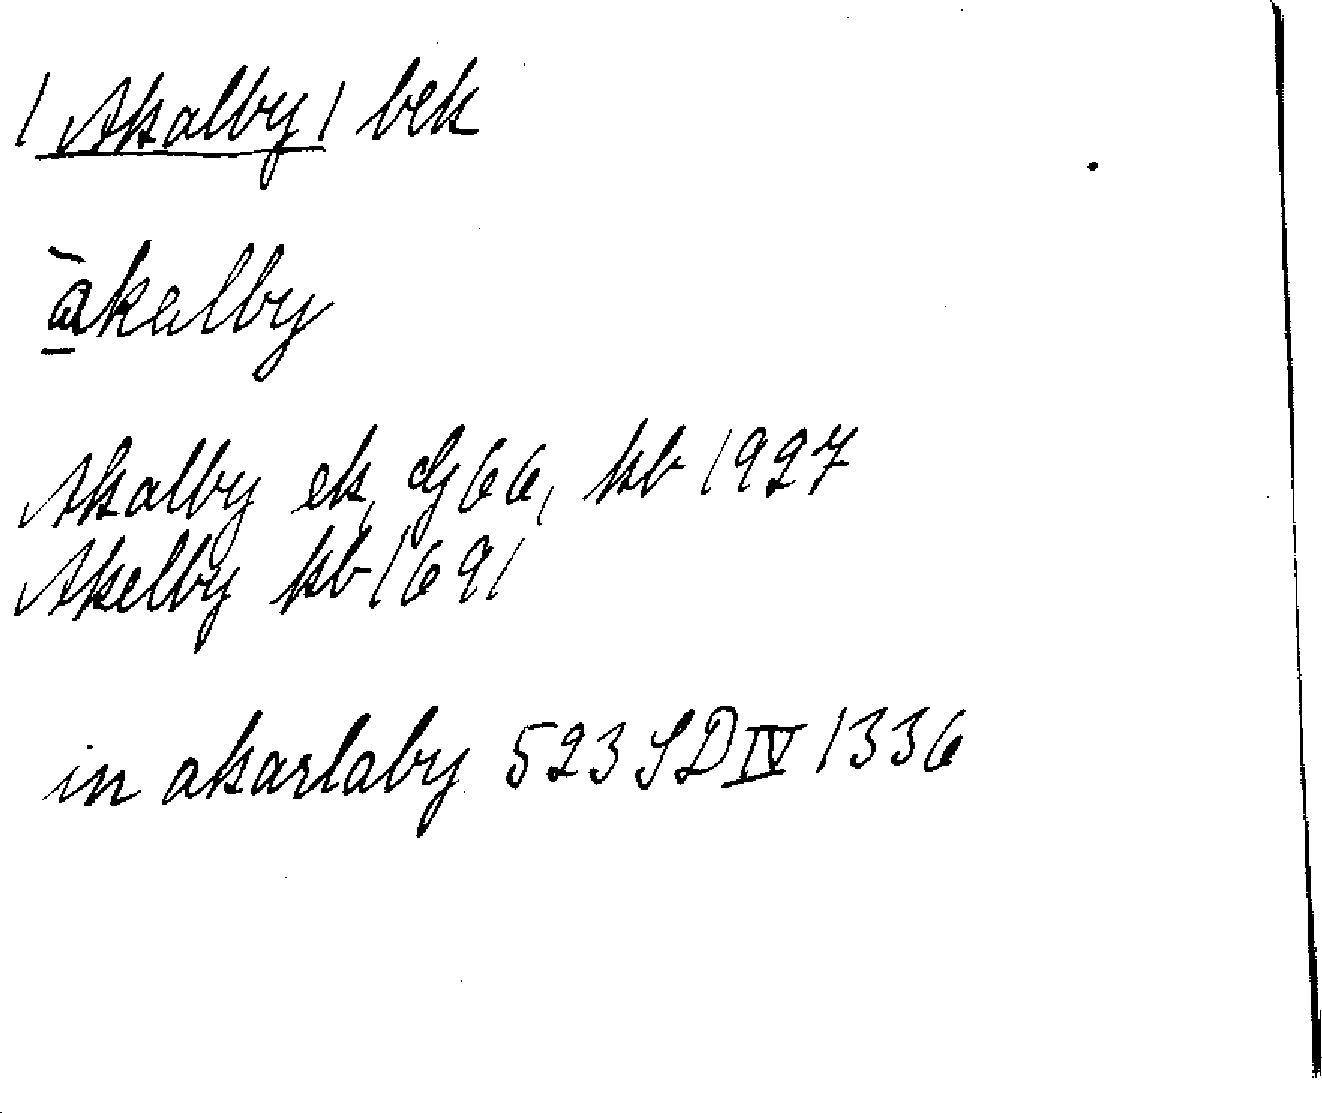 / Akalby / bek
àkalby
Akalby ek, Gg 66, kb 1927
Akelby kb 1691
in akarlaby 523 SD IV 1336